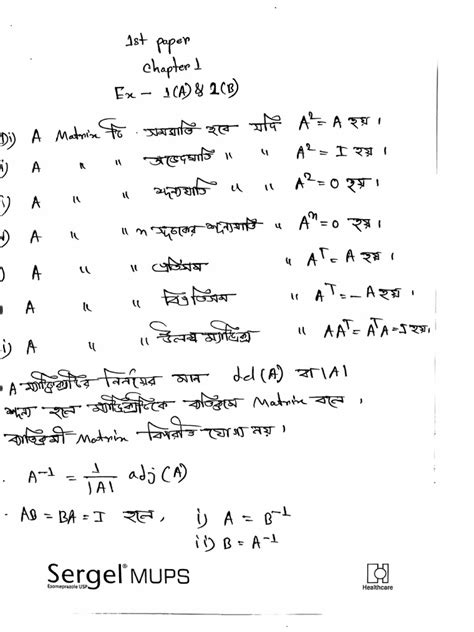 1st paper
Chapter 1
Ex – 1(A) & 2(B)
i) A Matrix টি সমঘাতি হবে যদি A² = A হয়।
A " " অভেদঘাতি " " A² = I হয়।
A " " শূন্যঘাতি " " A² = 0 হয়।
A " " n সূচকের শূন্যঘাতি " Aⁿ = 0 হয়।
A " " প্রতিসম " Aᵀ = A হয়।
A " " বিপ্রতিসম " Aᵀ = – A হয়।
i) A " " ম্যাট্রিক্স " AAᵀ = AᵀA = I হয়।
• A ম্যাট্রিক্সটির নির্ণায়কের মান det (A) বা |A|
শূন্য হলে ম্যাট্রিক্সটিকে ব্যতিক্রমী Matrix বলে।
ব্যতিক্রমী Matrix বিপরীত যোগ্য নয়।
A⁻¹ = 1/|A| adj (A)
AB = BA = I হলে, i) A = B⁻¹
ii) B = A⁻¹
Sergel® MUPS
Esomeprazole USP
Healthcare